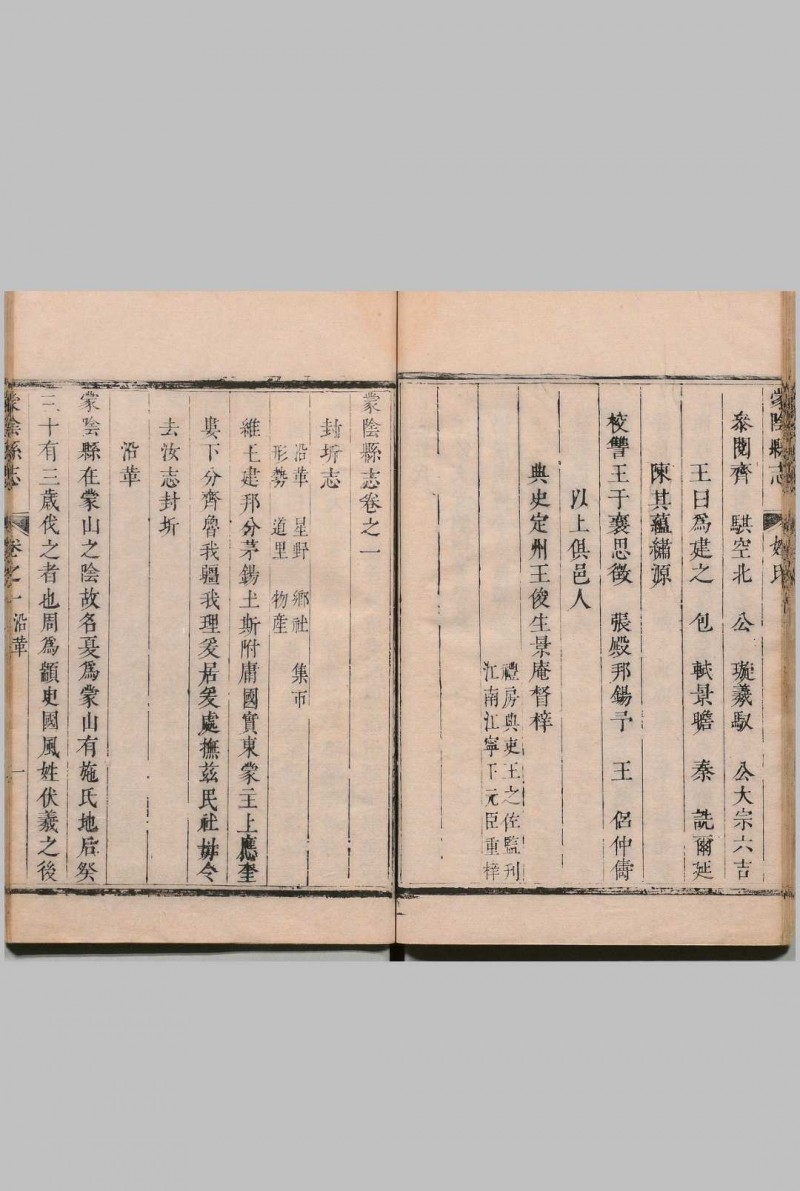 蒙陰縣志
姓氏
叅閱齊　騏空北　公　璇羲馭　公大宗六吉
王曰爲建之　包　軾景瞻　秦　詵爾延
陳其蘊繡源
校讐王于襄思徵　張殿邦錫予　王　侶仲儔
以上俱邑人
典史定州王俊生景庵督梓
禮房典吏王之佐監刊
江南江寧卞元臣重梓
蒙陰縣志卷之一
封圻志
沿革　星野　鄉社　集市
形勢　道里　物產
維王建邦分茅錫土斯附庸國實東蒙主上應奎
婁下分齊魯我疆我理爰居爰處撫茲民社毋令
去汝志封圻
沿革
蒙陰縣在蒙山之陰故名夏爲蒙山有施氏地后癸
三十有三歲伐之者也周爲顓臾國風姓伏羲之後
蒙陰縣志
卷之一
沿革
一